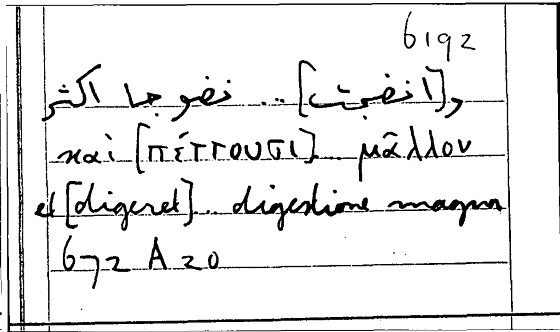 6192
و[انضجت] .. نضوجا اكثر
καὶ [πέττουσι]... μᾶλλον
et [digeret]... digestione magna
672 A 20